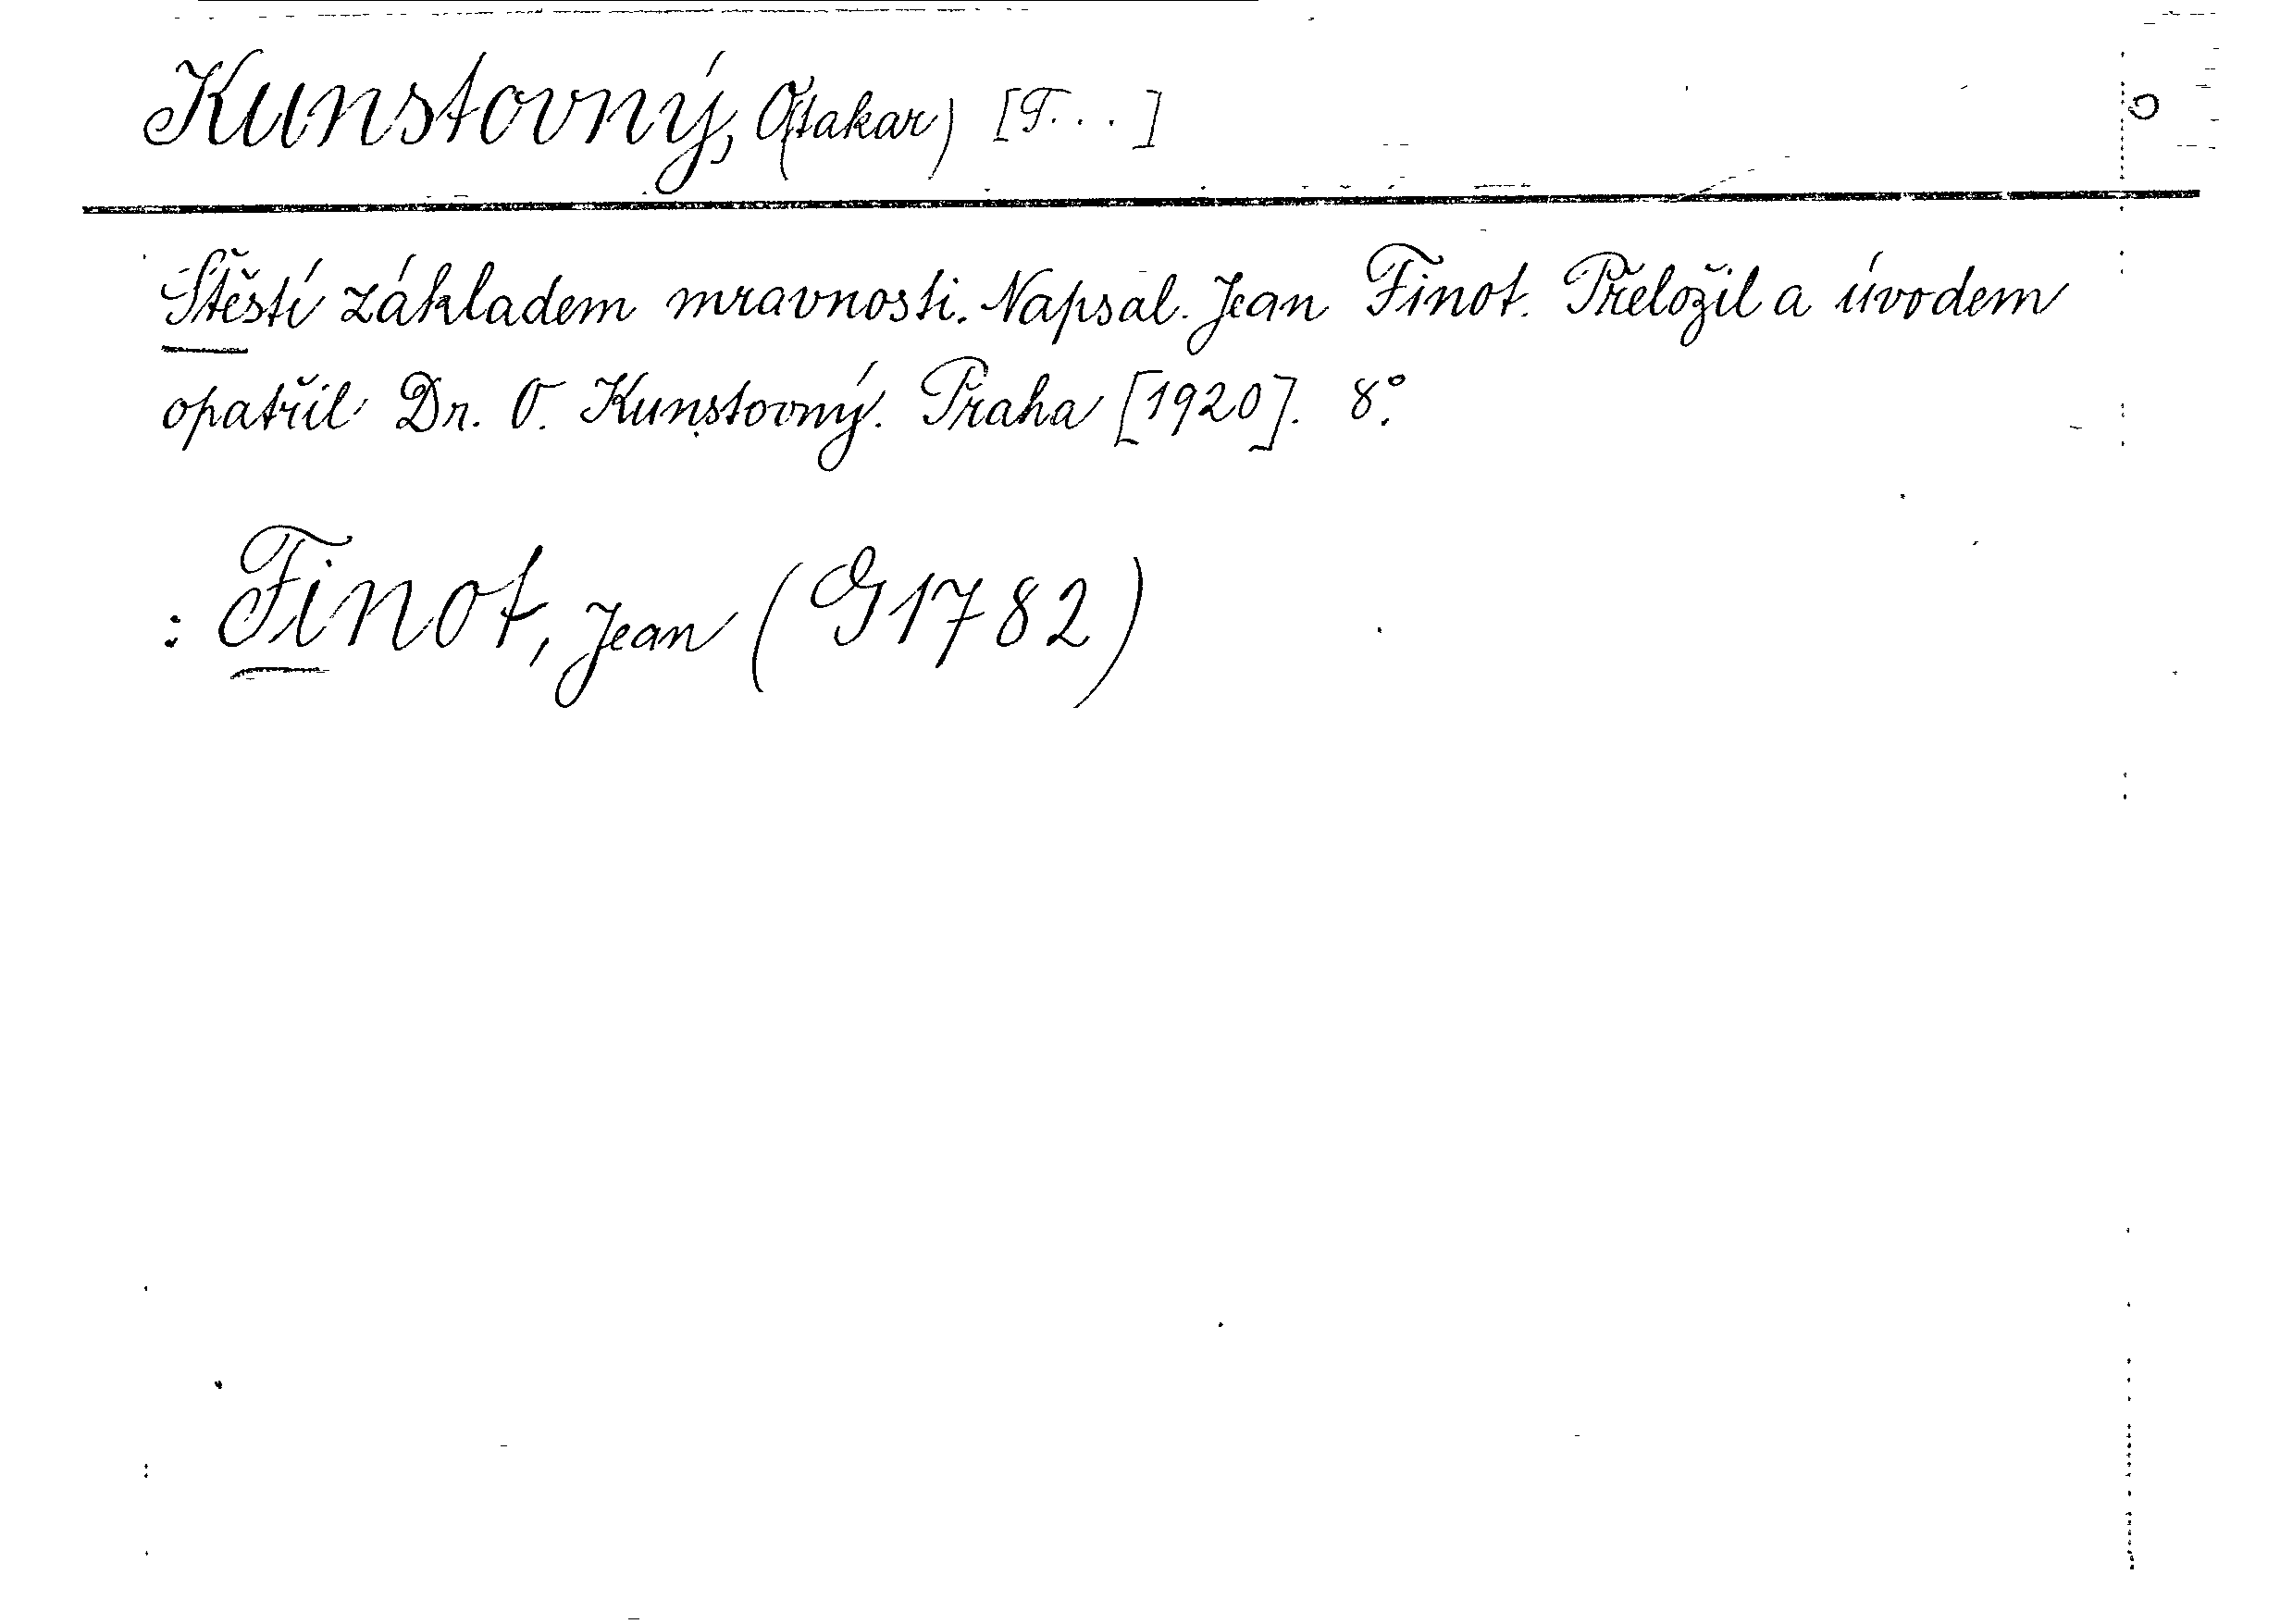 Kunstovný, O(takar) [T...]
Štěstí základem mravnosti. Napsal Jean Finot. Přeložil a úvodem
opatřil Dr. O. Kunstovný. Praha [1920]. 8°.
: Finot, Jean (G 1782)